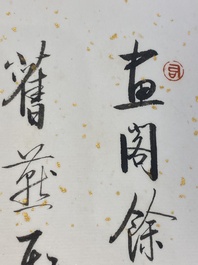 畫閣餘
舊燕